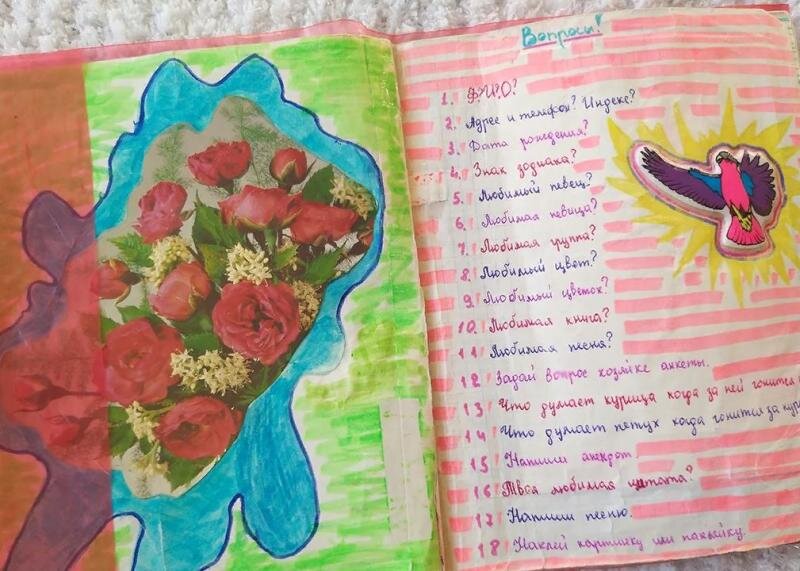 Вопросы!
1. Ф.И.О?
2. Адрес и телефон? Индекс?
3. Дата рождения?
4. Знак зодиака?
5. Любимый певец?
6. Любимая певица?
7. Любимая группа?
8. Любимый цвет?
9. Любимый цветок?
10. Любимая книга?
11. Любимая песня?
12 Задай вопрос хозяйке анкеты.
13 Что думает курица когда за ней гонится
14 Что думает петух когда гонится за
15 Напиши анекдот
16 Твоя любимая цитата?
17 Напиши песню.
18 Наклей картинку или наклейку.